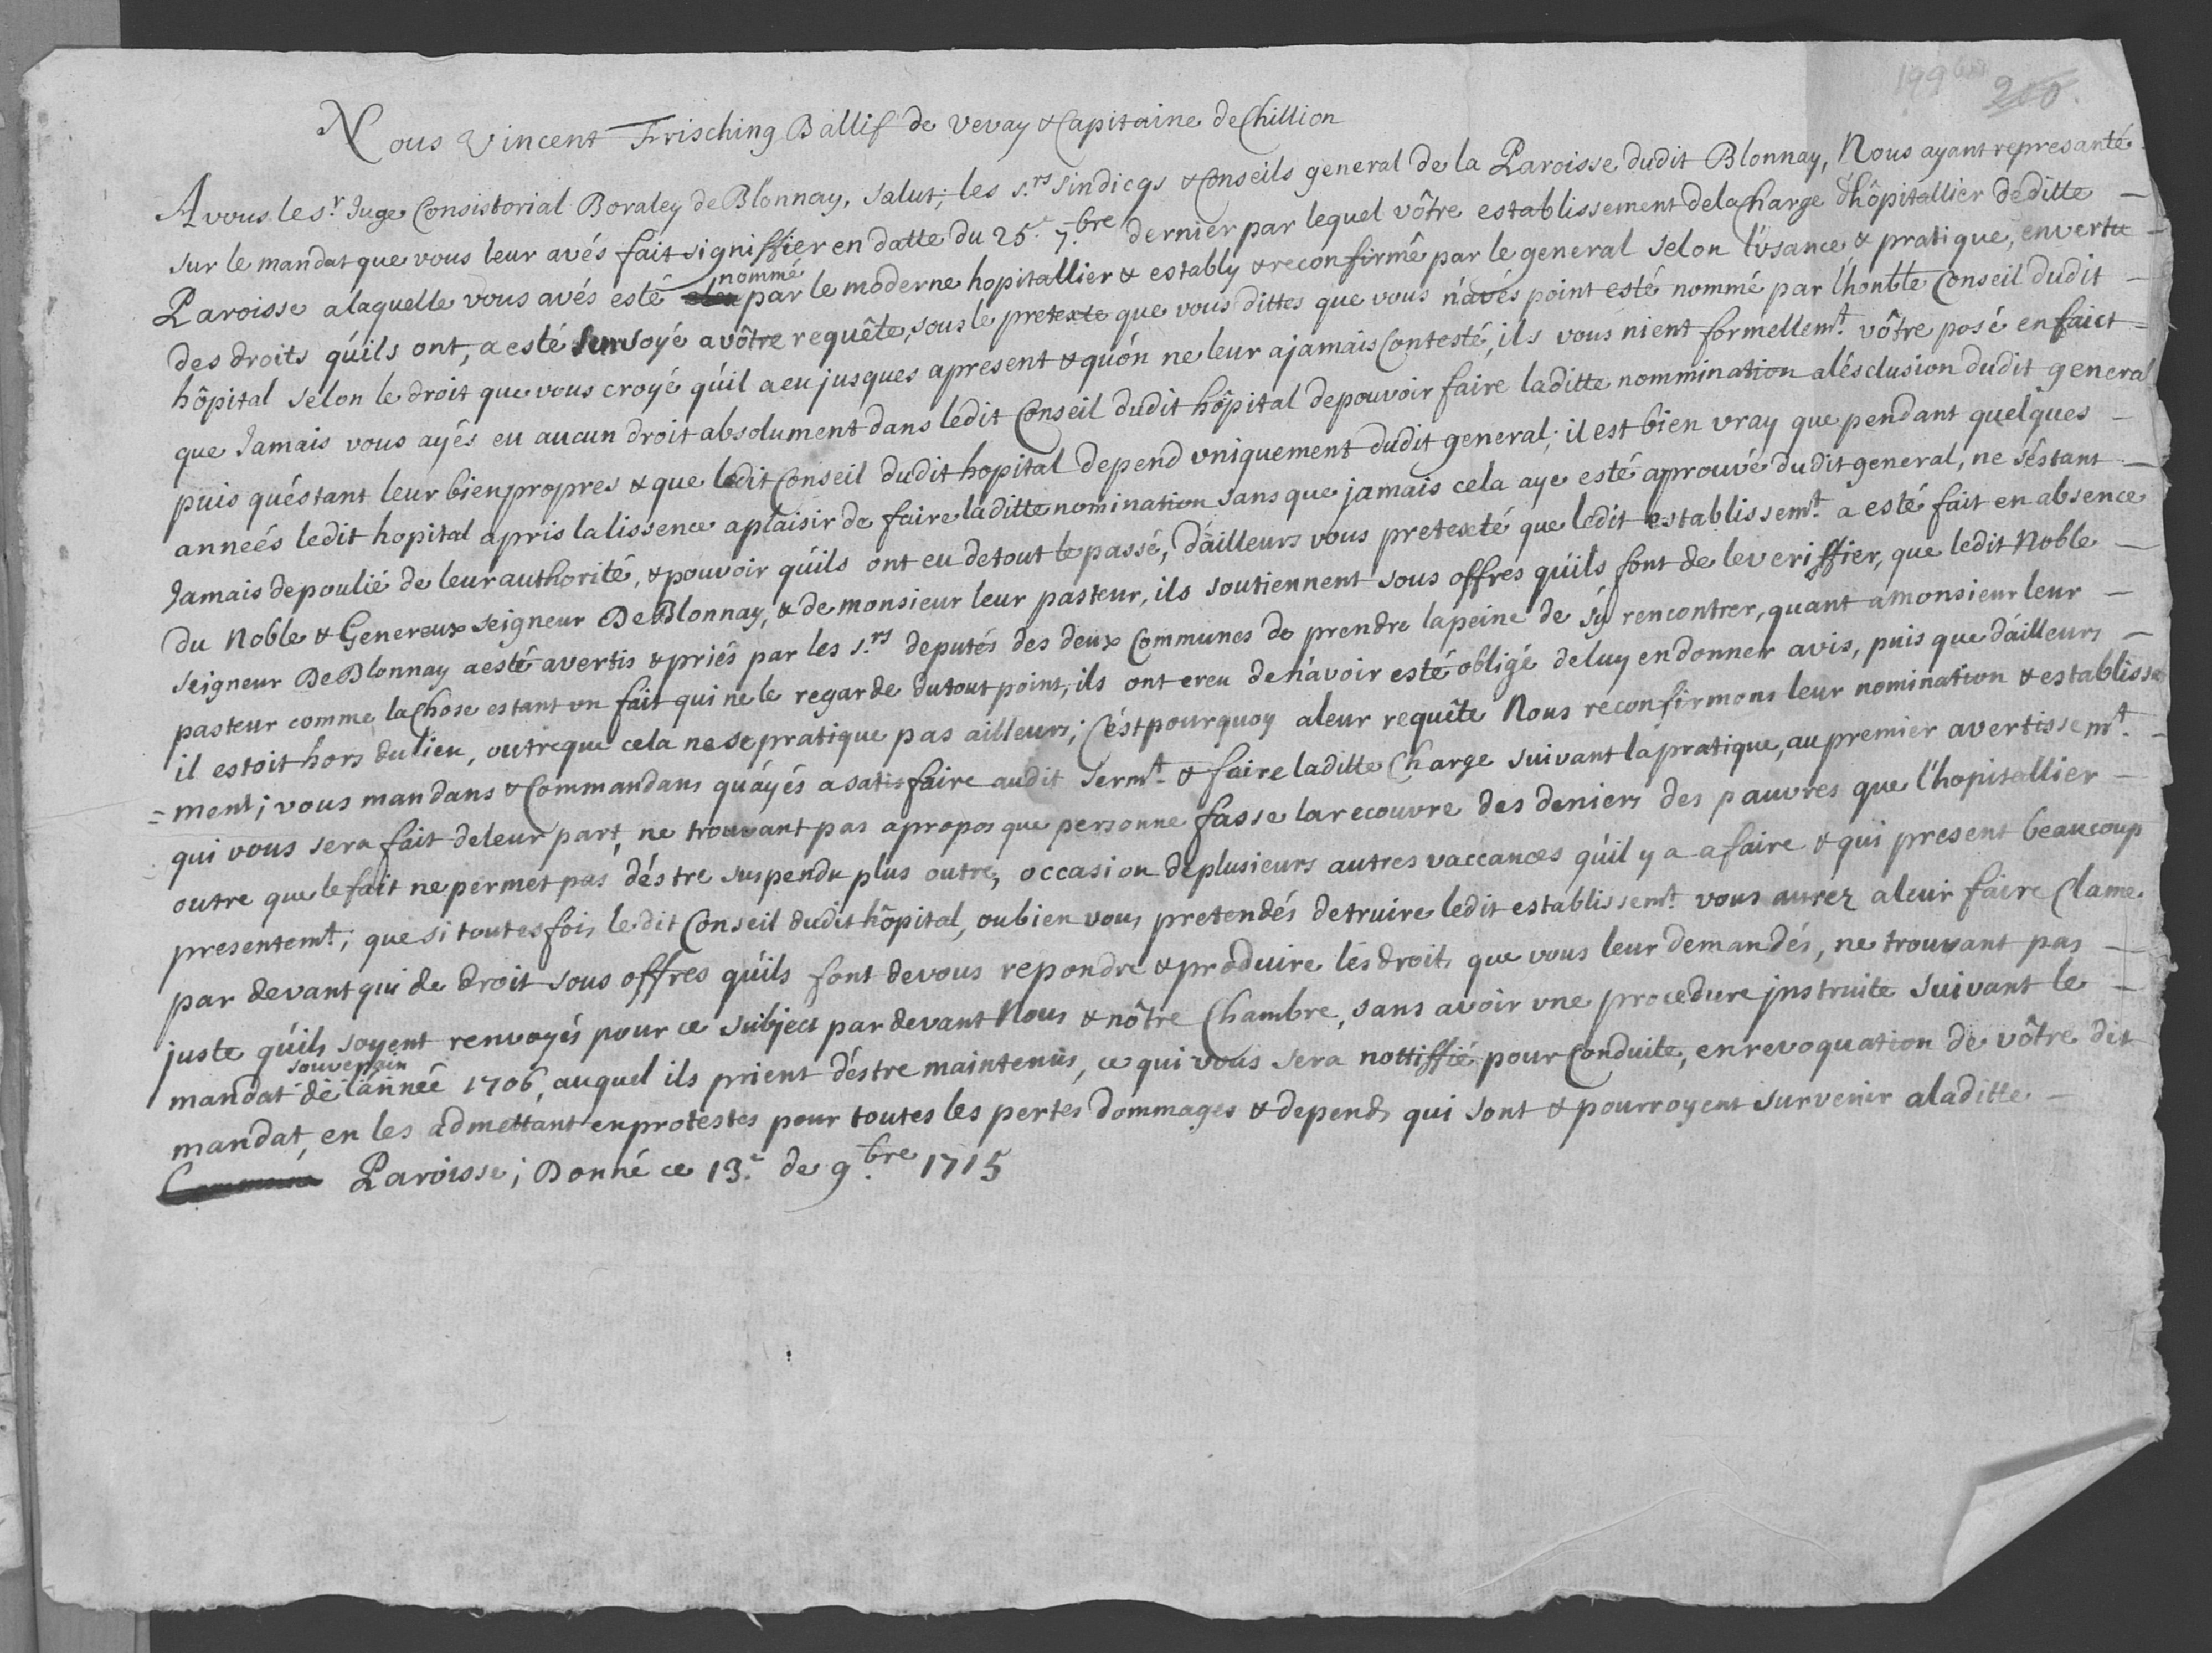 199 bis 200.
Nous Vincent Frisching Ballif de Vevay & Capitaine de Chillion
A vous le s.r Juge Consistorial Boraley de Blonnay, salut; les s.rs sindicqs & Conseils general de la Paroisse dudit Blonnay, Nous ayant represanté
sur le mandat que vous leur avés fait signiffier en datte du 25.e 7.bre dernier par lequel vôtre establissement de la Charge d'hôpitallier de ditte –
Paroisse a laquelle vous avés esté nommé par le moderne hopitallier & estably & reconfirmê par le general selon l'usance & pratique, en vertu –
des droits qu'ils ont, a esté sursoyé a vôtre requête, sous le pretexte que vous dittes que vous n'avés point esté nommé par l'honble Conseil dudit –
hôpital selon le droit que vous croyé qu'il a eu jusques apresent & qu'on ne leur a jamais Contesté, ils vous nient formellem.t vôtre posé en faict =
que Jamais vous ayés eu aucun droit absolument dans ledit Conseil dudit hôpital de pouvoir faire laditte nommination a l'ésclusion dudit general
puis qu'éstant leur bien propres & que ledit Conseil dudit hopital depend vniquement dudit general; il est bien vray que pendant quelques –
anneés ledit hopital a pris la lissence a plaisir de faire laditte nomination sans que jamais cela aye esté aprouvé dudit general, ne s'éstant –
Jamais depoulié de leur authorité, & pouvoir qu'ils ont eu de tout le passé, d'ailleurs vous pretexté que ledit establissem.t a esté fait en absence
du Noble & Genereux seigneur De Blonnay, & de monsieur leur pasteur, ils soutiennent sous offres qu'ils font de le veriffier, que ledit Noble –
seigneur De Blonnay a esté avertis & priés par les s.rs deputés des deux Communes de prendre la peine de s'y rencontrer, quant a monsieur leur –
pasteur comme la Chose estant vn fait qui ne le regarde du tout point, ils ont creu de n'avoir esté obligé de luy en donner avis, puis que d'ailleurs –
il estoit hors du lieu, outre que cela ne se pratique pas ailleurs; C'est pourquoy a leur requête Nous reconfirmons leur nomination & establisse
= ment; vous mandans & Commandans qu'ayés a satisfaire audit serm.t & faire laditte Charge suivant la pratique, au premier avertissem.t –
qui vous sera fait de leur part, ne trouvant pas apropos que personne fasse la recouvre des deniers des pauvres que l'hopitallier –
outre que le fait ne permet pas d'éstre suspendu plus outre, occasion de plusieurs autres vaccances qu'il y a a faire & qui present beaucoup
presentem.t; que si toutesfois ledit Conseil dudit hôpital, ou bien vous pretendés detruire ledit establissem.t vous aurez a leur faire Clame
par devant qui de droit sous offres qu'ils font de vous repondre & produire les droits que vous leur demandés, ne trouvant pas –
juste qu'ils soyent renvoyés pour ce subject par devant Nous & nôtre Chambre, sans avoir vne procedure jnstruite suivant le –
mandat souverain de l'anneé 1706, auquel ils prient d'éstre maintenus, ce qui vous sera nottiffié pour Conduite, en revoquation de vôtre dit
mandat, en les admettant en protestes pour toutes les pertes dommages & depends qui sont & pourroyent survenir a laditte –
Paroisse; Donné ce 13.e de 9.bre 1715